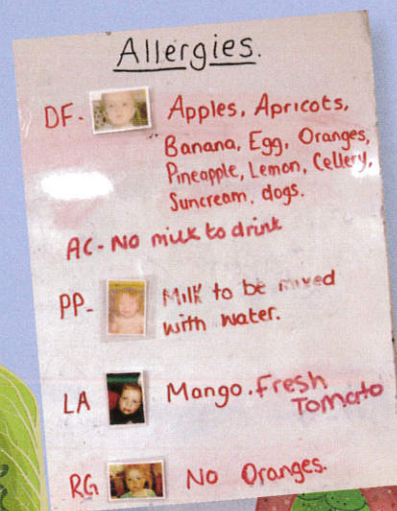 Allergies.
DF- Apples, Apricots,
Banana, Egg, Oranges,
Pineapple, Lemon, Cellery,
Suncream, dogs.
AC- No milk to drink
PP- Milk to be mixed
with water.
LA Mango. Fresh
Tomato
RG No Oranges.